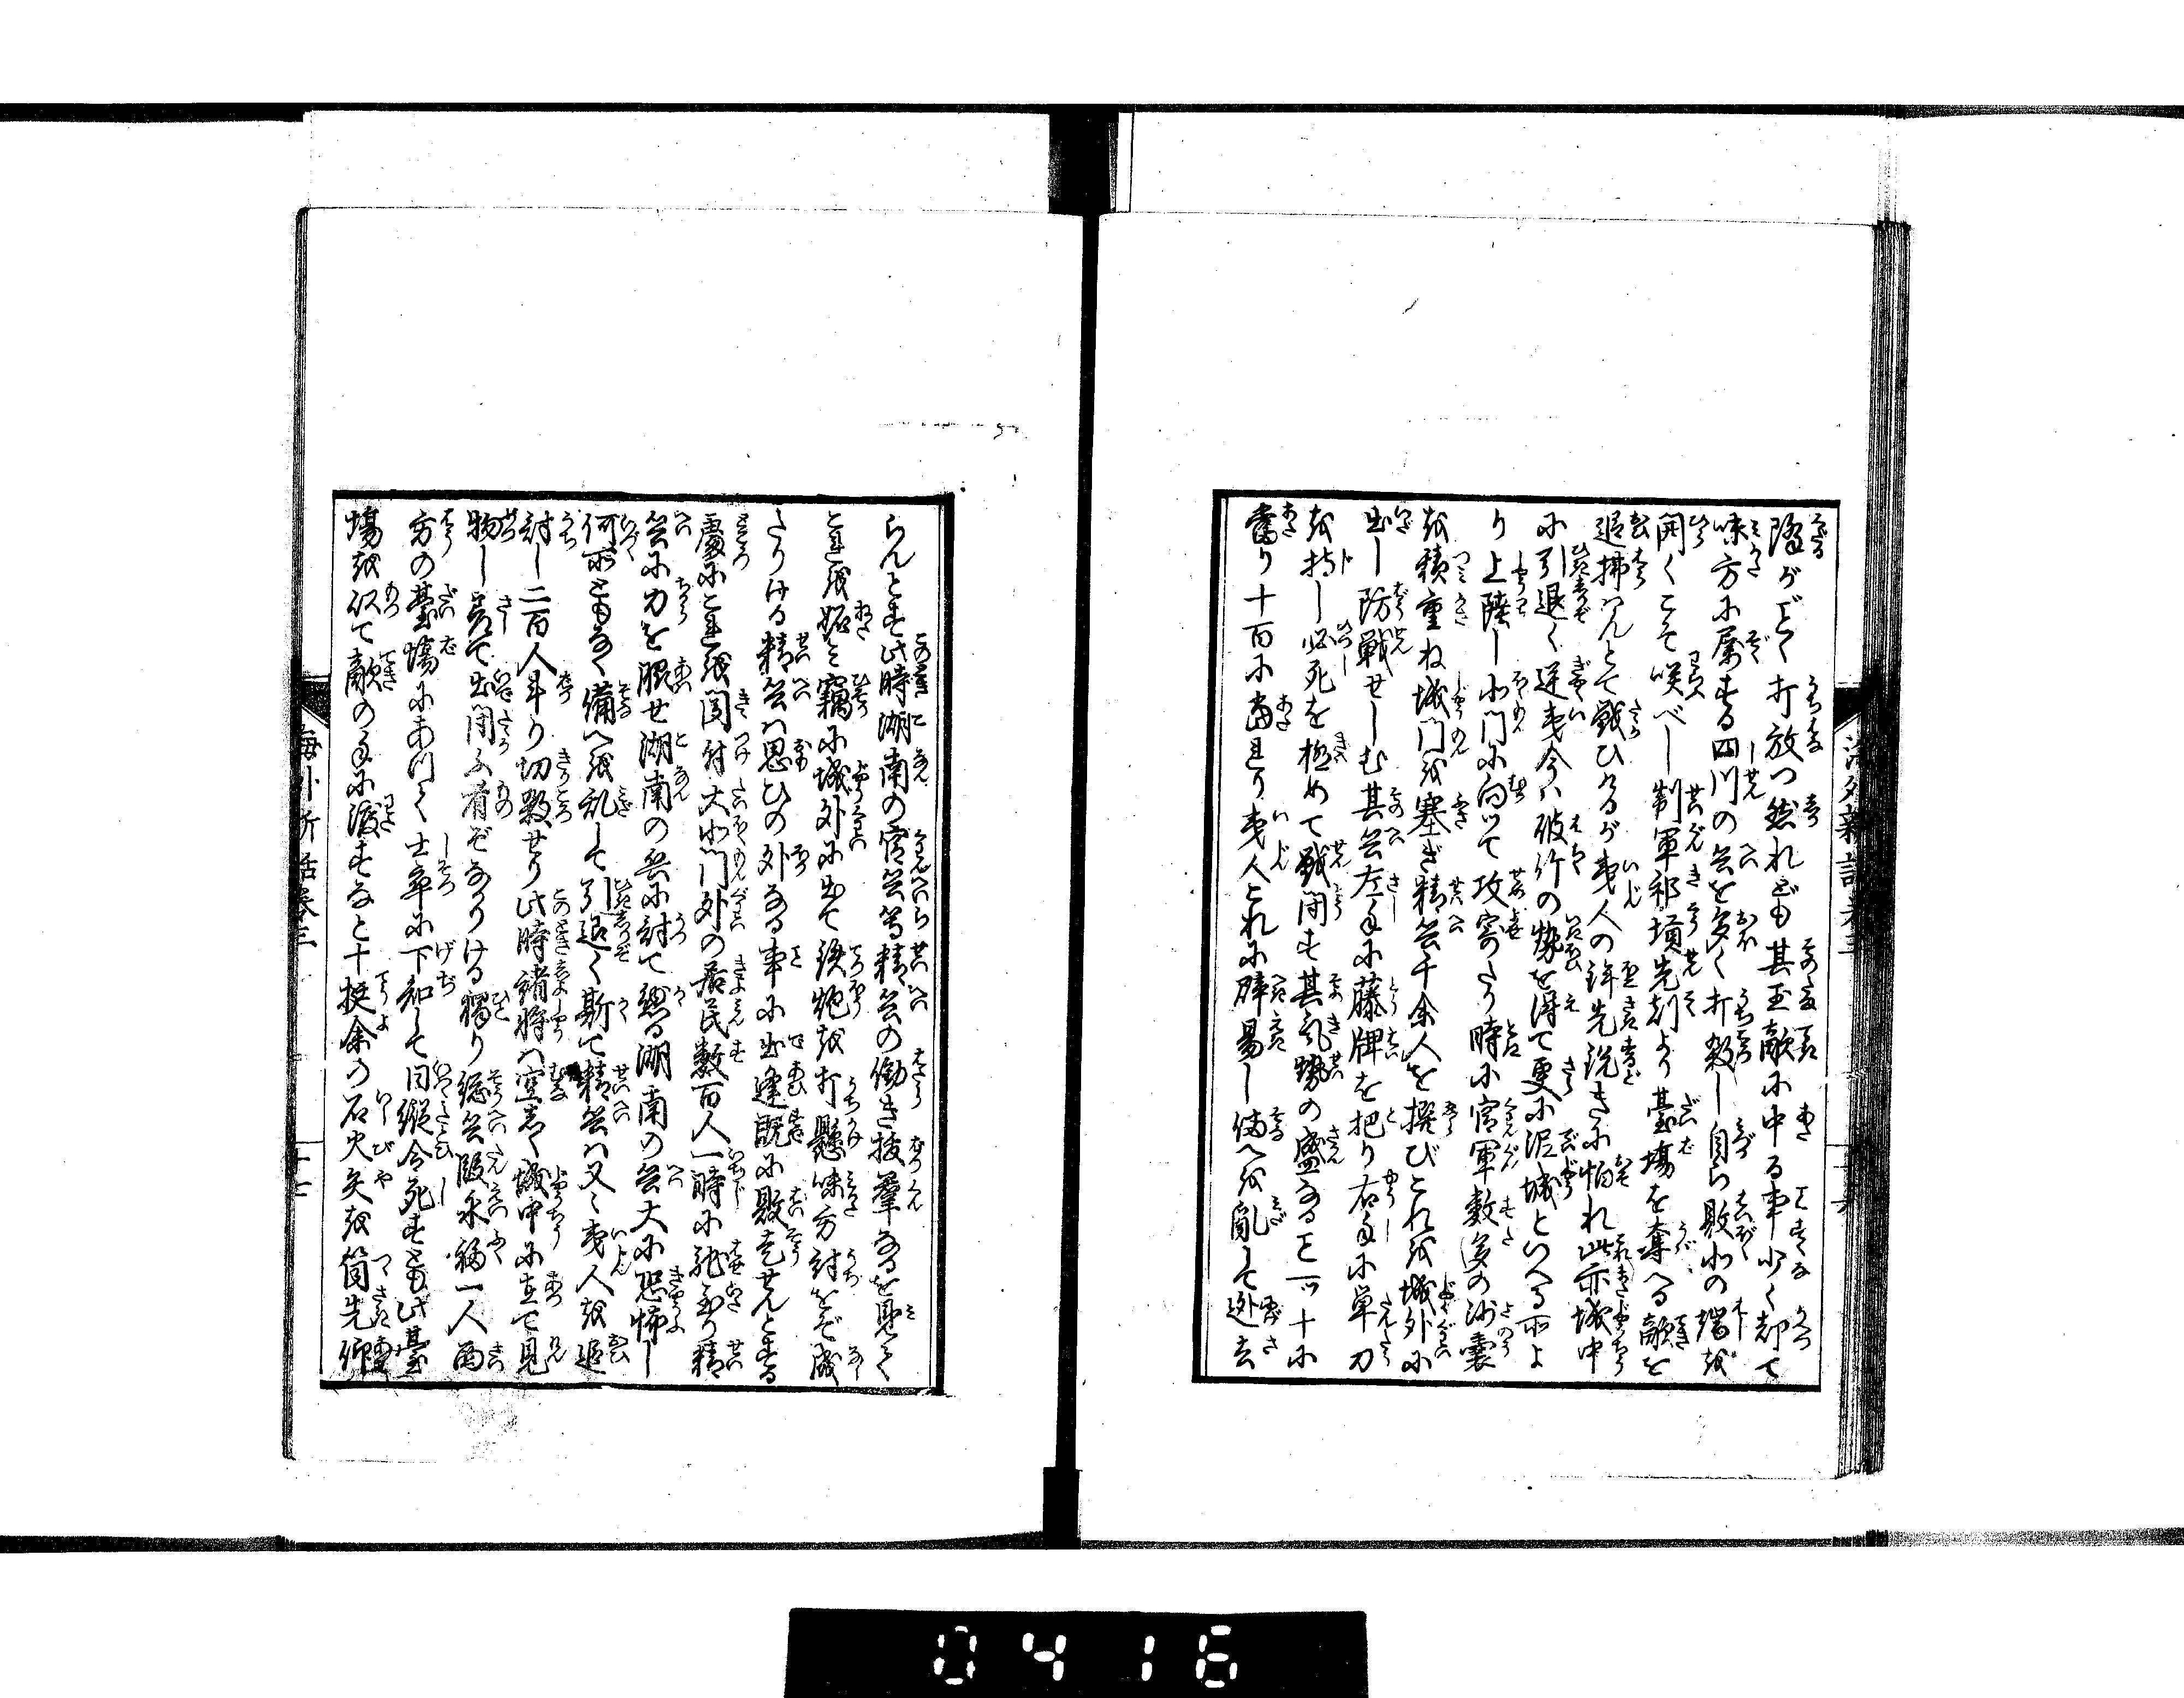 降がごとく打放つ然れども其玉敵に中る事少く却て
味方に属する四川の兵を多く打殺し自ら敗北の端を
開くこそ咲べし制軍祁𡑞先刻より臺場を奪へる敵を
追拂はんとて戦ひけるが夷人の鋒先銳きに怕れ此亦城中
に引退く逆夷今は破竹の勢を得て更に泥城といへる所よ
り上陸し北門に向つて攻寄たり時に官軍數多の沙囊
を積重ね城門を塞ぎ精兵千余人を撰びこれを城外に
出し防戦せしむ其兵左手に藤牌を把り右手に單刀
を持し必死を極めて戦闘す其氣勢の盛なる事一ツ十に
當り十百に當れり夷人これに辟易し備へを亂して逃去
らんとす此時湖南の官兵等精兵の働き抜羣なるを見て
これを妬み竊に城外に出て鉄炮を打懸味方討をぞ成
たりける精兵は思ひの外なる事に出逢既に敗走せんとする
處にこれを聞付大北門外の居民數百人一時に馳参り精
兵に力を勠せ湖南の兵に討て懸る湖南の兵大に恐怖し
何所ともなく備へを乱して引退く斯て精兵は又々夷人を追
討し二百人斗り切殺せり此時諸將は空しく城中に在て見
物し
て出闘ふ者ぞなかりける獨り總兵段永福一人西
方の臺場にあつて士卒に下知して曰縱令死すとも此臺
場を以て敵の手に渡すなと十挺余の石火矢を筒先
海外新話巻三
十七
0416